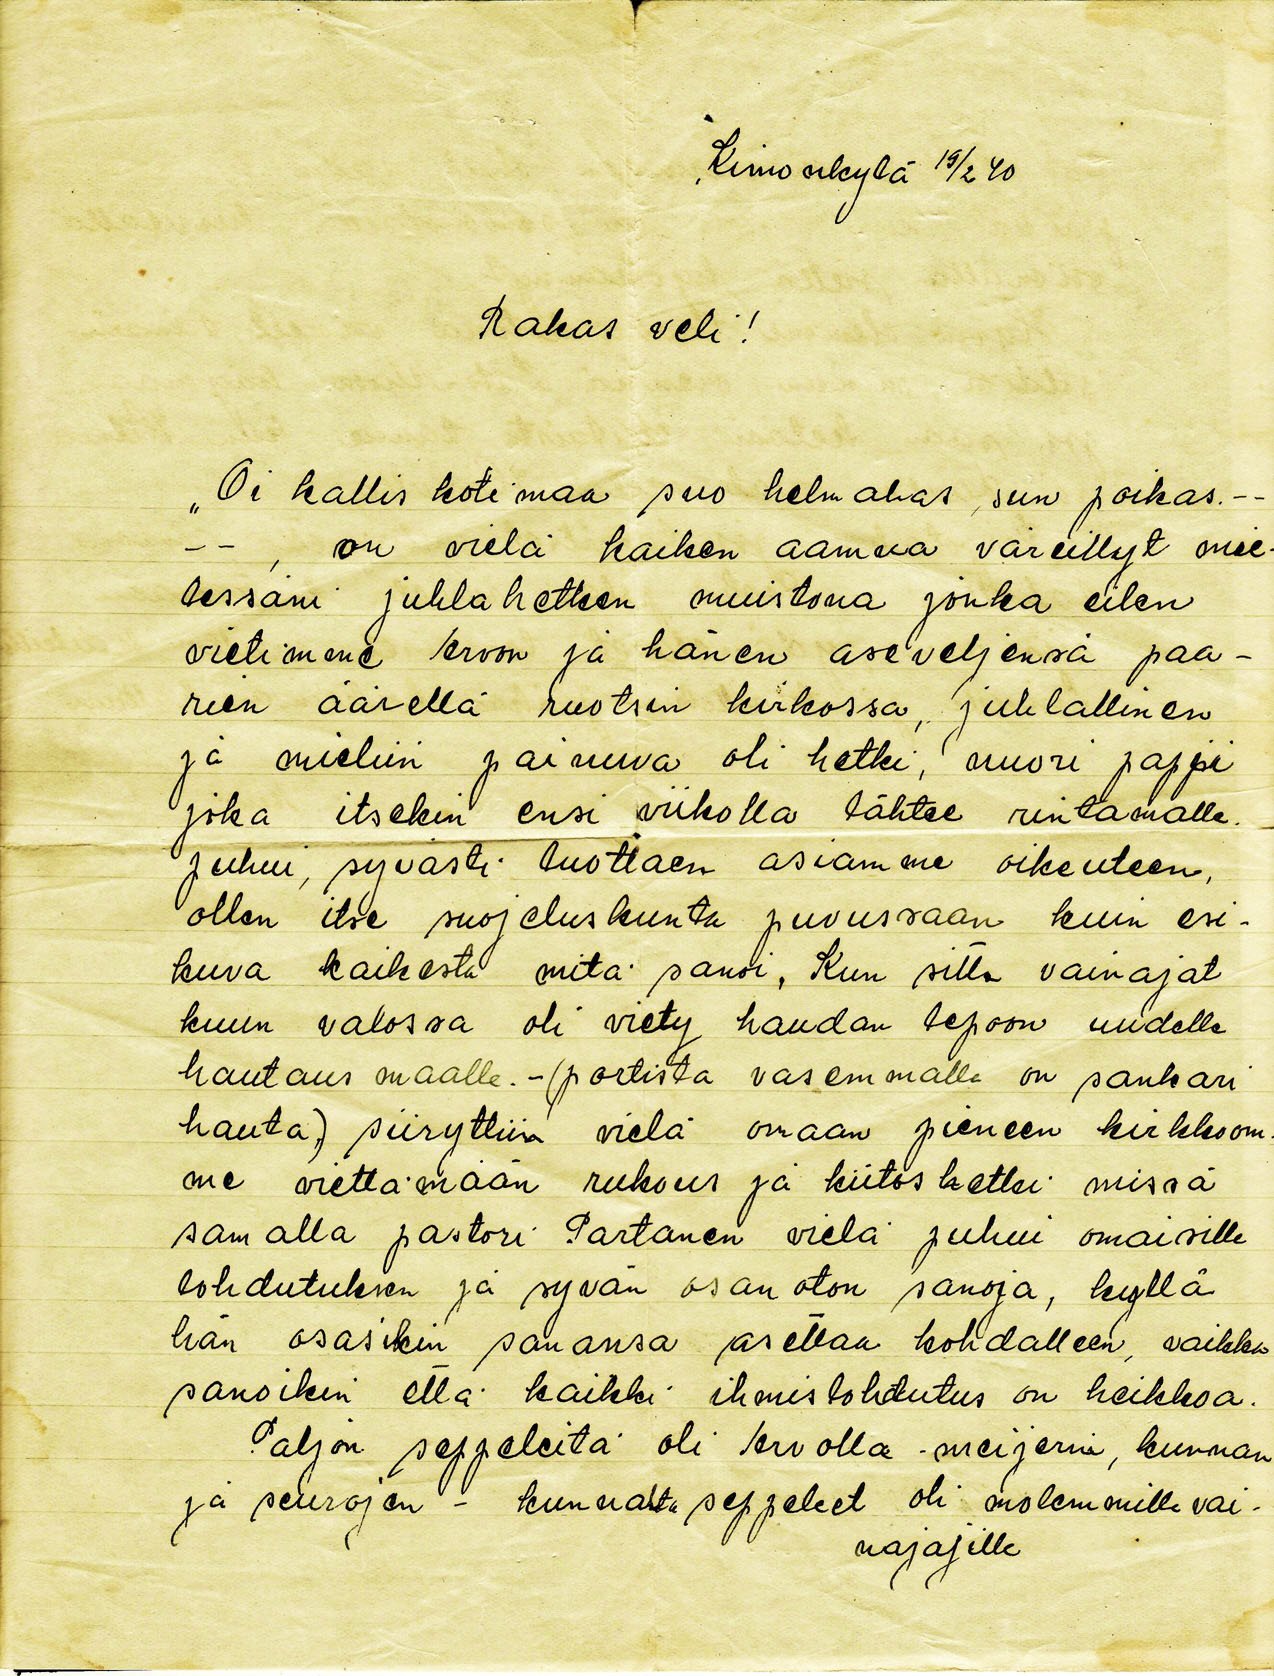 Kimonkylä 19/2 40
Rakas veli!
„Oi kallis kotimaa suo helmahas, sun poikas.--
--, on vielä kaiken aamua väreillyt mie-
lessäni juhlahetken muistona jonka eilen
vietimme Ervon ja hänen aseveljensä paa-
rien äärellä ruotsin kirkossa, juhlallinen
ja mieliin painuva oli hetki, nuori pappi
joka itsekin ensi viikolla lähtee rintamalle.
puhui, syvästi luottaen asiamme oikeuteen,
ollen itse suojeluskunta puvussaan kuin esi-
kuva kaikesta mitä sanoi, Kun sitte vainajat
kuun valossa oli viety haudan lepoon uudelle
hautaus maalle. -(portista vasemmalle on sankari
hauta) siiryttiin vielä omaan pieneen kirkkoom-
me viettämään rukous ja kiitoshetki missä
samalla pastori Partanen vielä puhui omaisille
lohdutuksen ja syvän osanoton sanoja, kyllä
hän osasikin sanansa asettaa kohdalleen, vaikka
sanoikin että kaikki ihmislohdutus on heikkoa.
Paljon seppeleitä oli Ervolla - meijerin, kunnan
ja seurojen - kunnalta seppeleet oli molemmille vai-
najajille